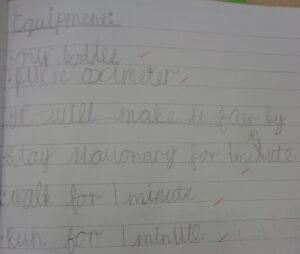 Equipment:
• our bodies
• pulse oximeter
We will make it fair by
• Stay stationary for 1 minute
• walk for 1 minute
• Run for 1 minute